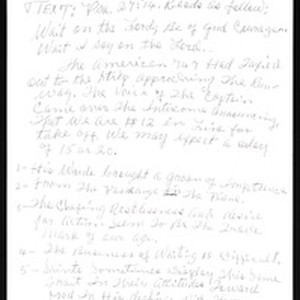 TEXT: Psa. 27:14. Reads as follow:
Wait on the Lord; Be of Good Courage..
Wait I say on the Lord..
The American 727 Had Taxied
out to the strip approaching The Run
Way. The Voice of The Captain
Came over The Intercome announcing,
That We Are #12 in Line for
take off. We may Expect a delay
of 15 or 20.
1- His Words brought a groan of Impatience
2- From The Package in The Plane.
3- The Chafing Restlessness and desire
for Action Seem To Be The Trade
Mark of our age.
4- The Business of Waiting is Difficult.
5- Saints Sometimes Display This Same
Trait In Their Attitudes Toward
God In His